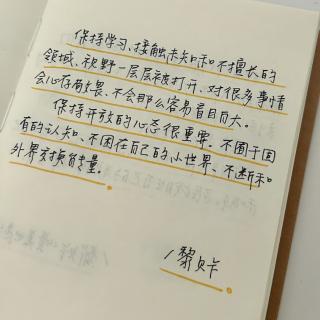 保持学习、接触未知和不擅长的
领域、视野一层层被打开、对很多事情
会心存敬畏、不会那么容易盲目自大。
保持开放的心态很重要。不囿于固
有的认知、不困在自己的小世界、不断和
外界交换能量。
/黎贝卡